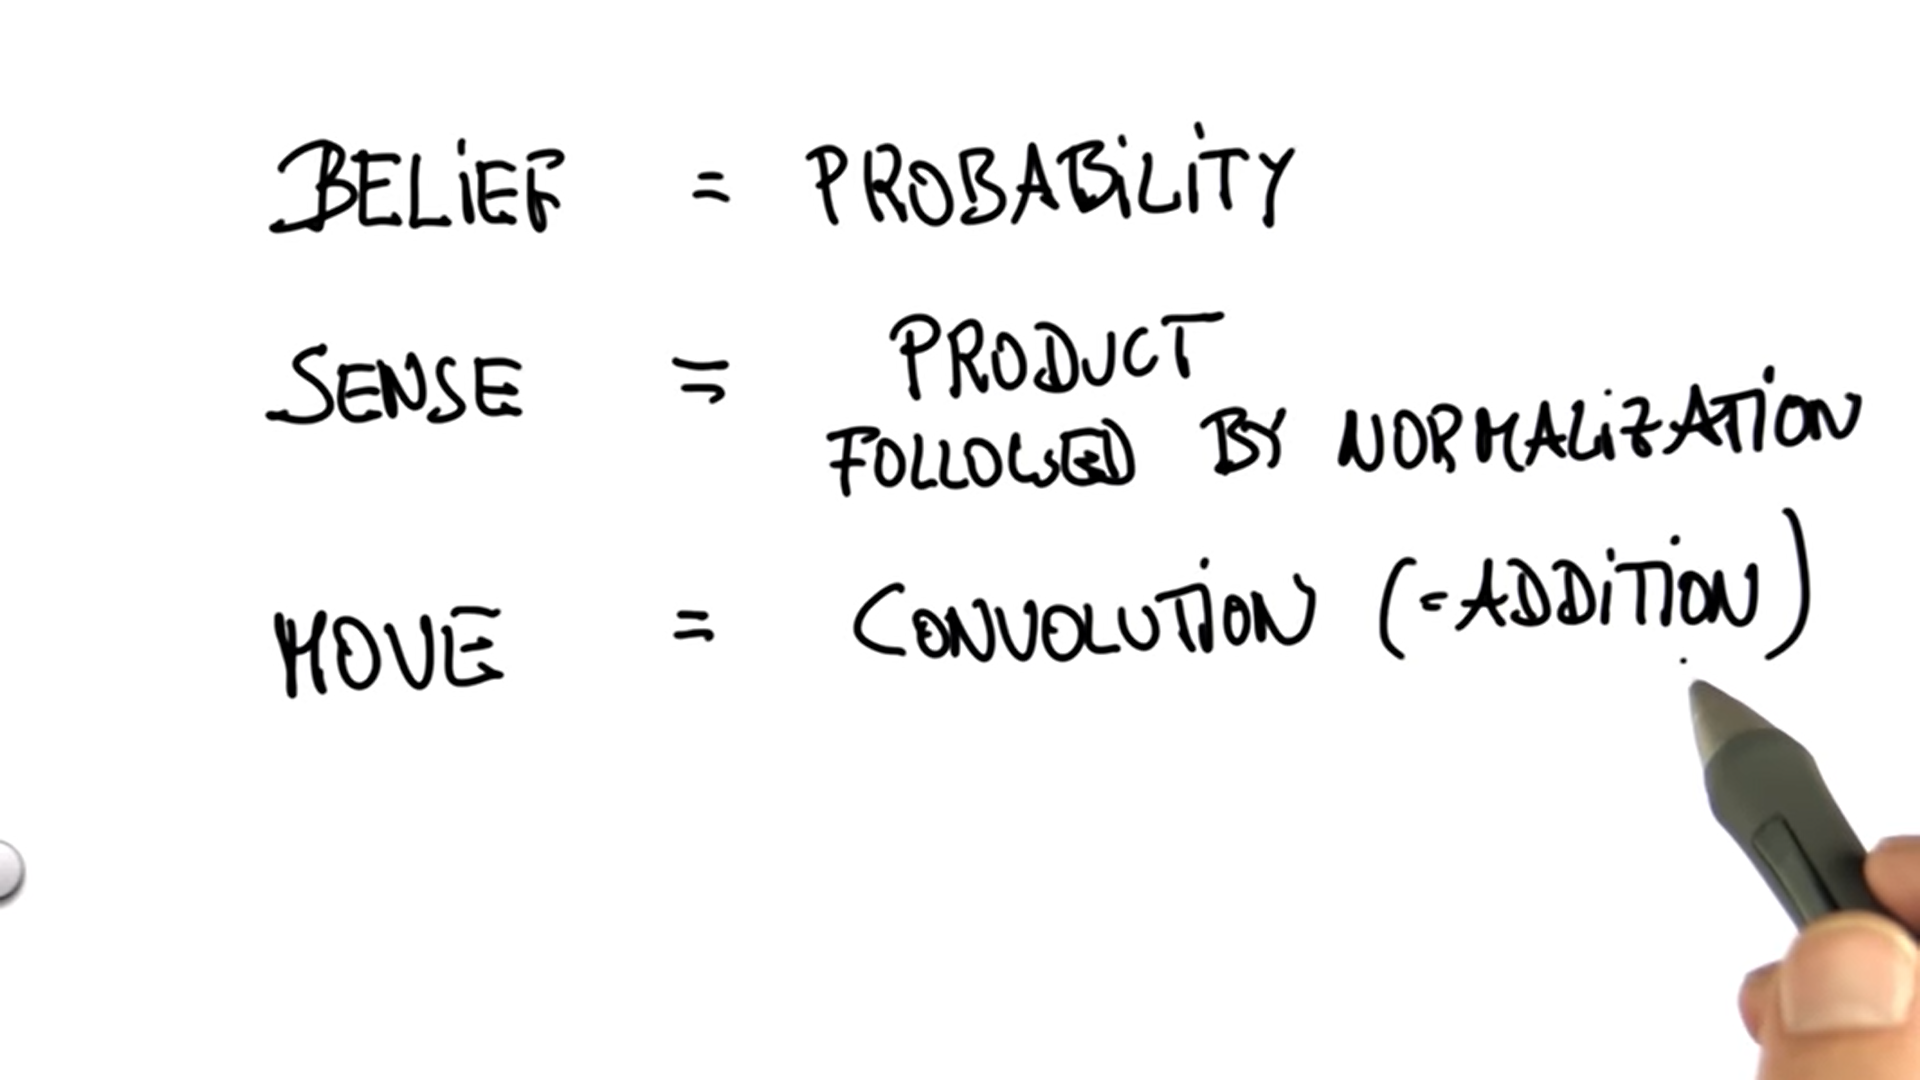 BELiEF = PROBABiLiTY
SENSE = PRODUCT
FOLLOWED BY NORMALiZATiON
MOVE = CONVOLUTiON (=ADDiTiON)